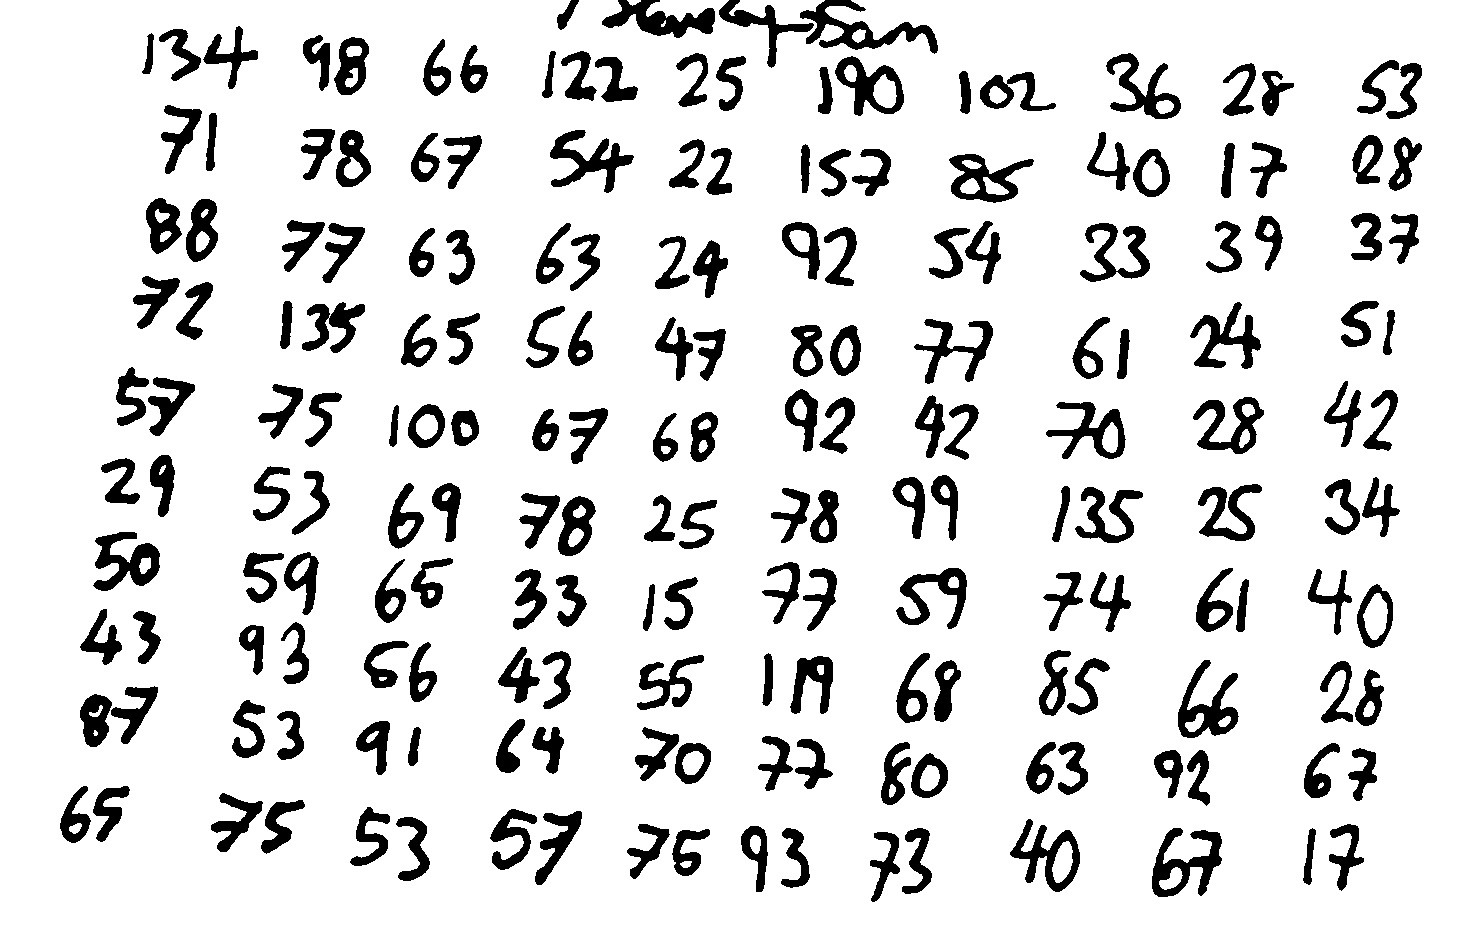 Sam
134 98 66 122 25 190 102 36 28 53
71 78 67 54 22 157 85 40 17 28
88 77 63 63 24 92 54 33 39 37
72 135 65 56 47 80 77 61 24 51
57 75 100 67 68 92 42 70 28 42
29 53 69 78 25 78 99 135 25 34
50 59 65 33 15 77 59 74 61 40
43 93 56 43 55 119 68 85 66 28
87 53 91 64 70 77 80 63 92 67
65 75 53 57 75 93 73 40 67 17